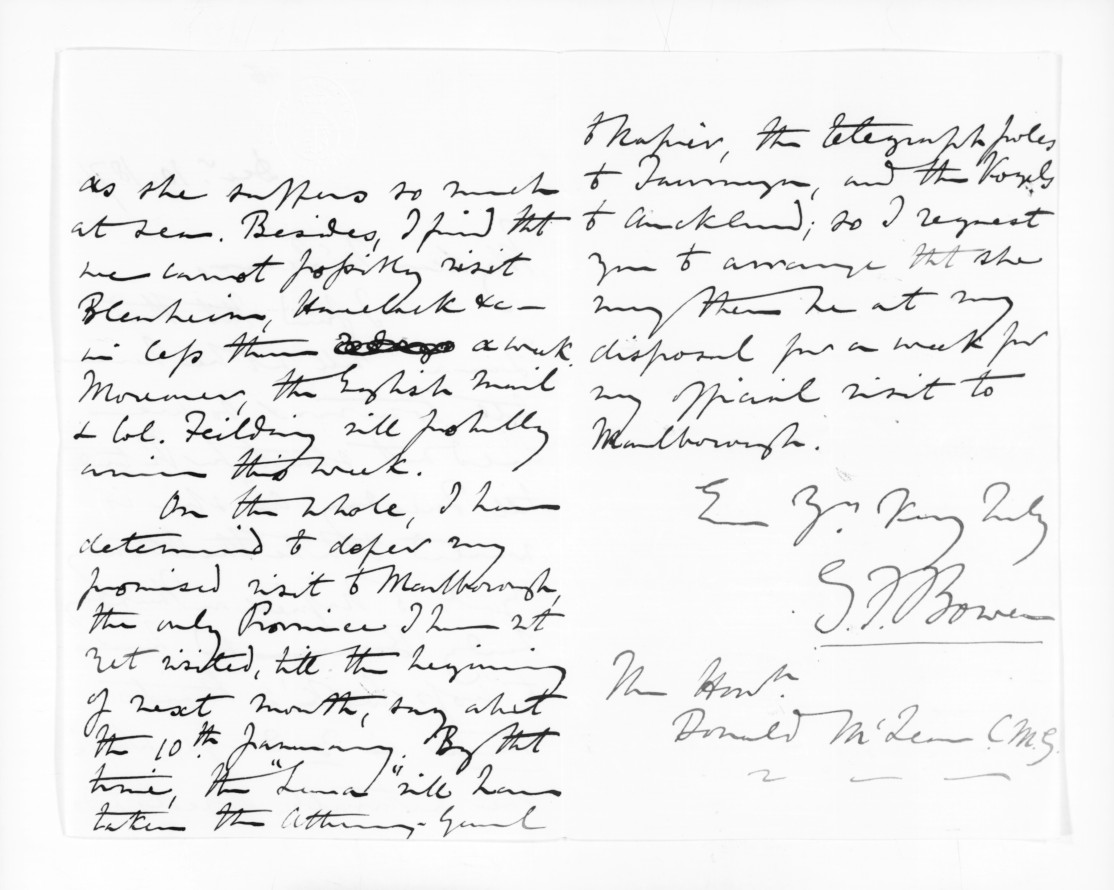 as she suffers so much
at sea. Besides, I find tht
we cannot possibly visit
Blenheim, Havelock &c –
in less than a week.
Moreover, the English Mail
& Col. Feilding will probably
arrive this week.
On the whole, I have
determined to defer my
promised visit to Marlborough,
the only Province I have not
yet visited, till the beginning
of next month, say abot
the 10th January. By tht
time, the "Luna" will have
taken the Attorney-Genl
to Napier, the telegraph poles
to Tauranga, and the Vogels
to Auckland; so I request
you to arrange tht she
may then be at my
disposal for a week for
my official visit to
Marlborough.
Ever Yrs Very Truly
G.F. Bowen
The Honble.
Donald McLean C.M.G.